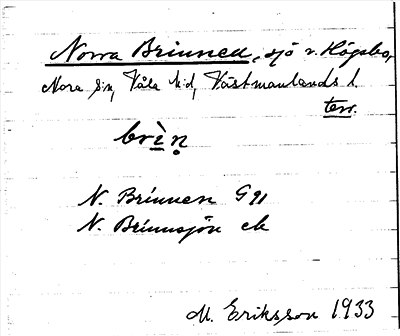 Norra Brinnen, sjö v. Högsbo,
Nora sn, Våla hd, Västmanlands l.
terr.
brìṇ
N. Brinnen G 91
N. Brinnsjön ek
M. Eriksson 1933